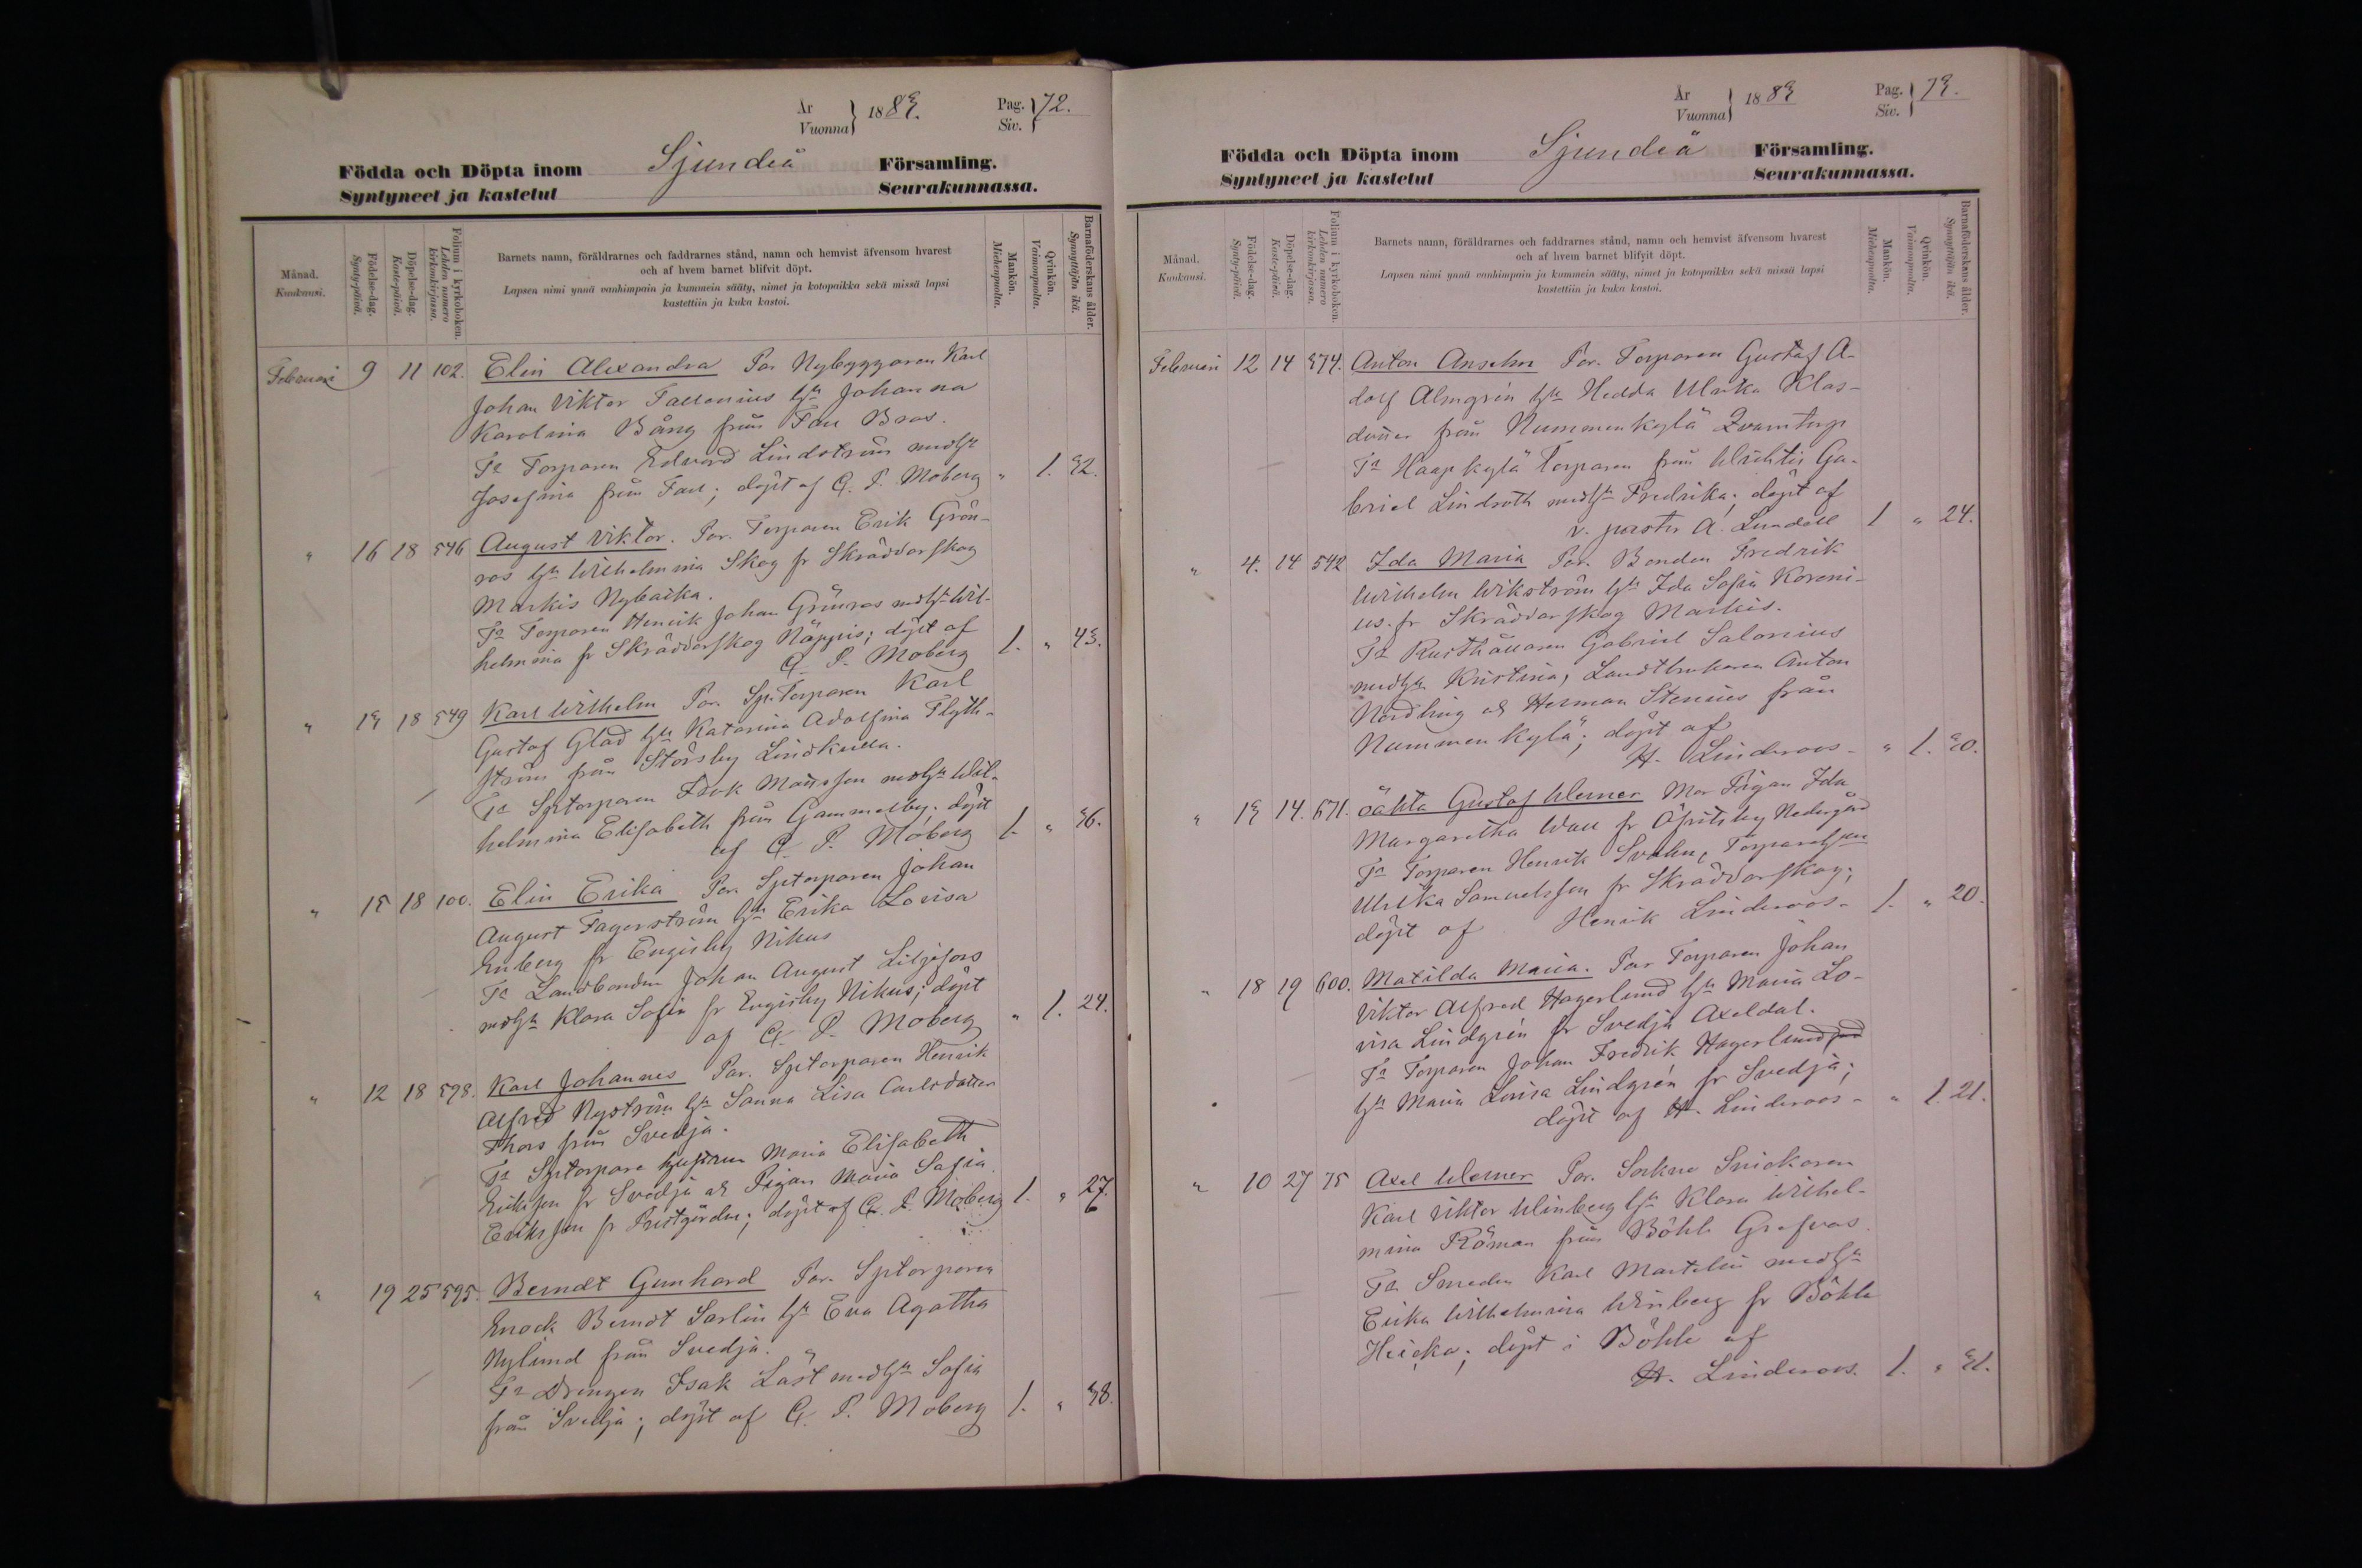 År
Vuonna
1883.
Pag.
Siv.
72.
Födda och Döpta inom Sjundeå Församling.
Syntyneet ja kastetut Seurakunnassa.
Månad.
Kuukausi.
Födelse-dag.
Synty-päivä.
Döpelse-dag.
Kaste-päivä.
Folium i kyrkoboken.
Lehden numero kirkonkirjassa.
Barnets namn, föräldrarnes och faddrarnes stånd, namn och hemvist äfvensom hvarest
och af hvem barnet blifvit döpt.
Lapsen nimi ynnä vanhimpain ja kummein sääty, nimet ja kotopaikka sekä missä lapsi
kastettiin ja kuka kastoi.
Mankön.
Miehenpuolta.
Qvinkön.
Vaimonpuolta.
Barnaföderskans ålder.
Synnyttäjän ikä.
Februari 9 11 102. Elin Alexandra Par Nybyggaren Karl
Johan Viktor Fallenius hu Johanna
Karolina Bång från Fall Bros.
Fa Torparen Edvard Lindström med hu
Josefina från Fall; döpt af G. P. Moberg " 1. 32.
" 16 18 546 August Viktor. Par. Torparen Erik Grön-
ros hu Wilhelmina Skog fr Skräddarskog
Markis Nybacka.
Fa Torparen Henrik Johan Grönros med hu Wil-
helmina fr Skräddarskog Näppis; döpt af
G. P. Moberg 1. " 43.
" 13 18 549 Karl Wilhelm Par. Sp. Torparen Karl
Gustaf Glad hu Katarina Adolfina Flyth-
ström från Störsby Lindkulla.
Fa Sptorparen Isak Mansson med hu Wil-
helmina Elisabeth från Gammelby; döpt
af G. P. Moberg 1. " 36.
" 15 18 100. Elin Erika Par. Sptorparen Johan
August Fagerström hu Erika Lovisa
Enberg fr Engisby Nikus
Fa Landbonden Johan August Liljefors
med hu Klara Sofia fr Engisby Nikus; döpt
af G. P. Moberg " 1. 24.
" 12 18 598. Karl Johannes Par. Sptorparen Henrik
Alfred Nyström hu Sanna Lisa Carlsdotter
Thors från Svedja.
Fa Sptorpare hustrun Maria Elisabeth
Eriksson fr Svedja o Pigan Maria Sofia
Eriksson fr Prestgården; döpt af G. P. Moberg 1. " 27.
" 19 25 595. Berndt Gunhard Par. Sptorparen
Enock Berndt Sarlin hu Eva Agatha
Nylund från Svedja.
Fa Drengen Isak Läst med hu Sofia
från Svedja; döpt af G. P. Moberg 1. " 38.
År
Vuonna
1883
Pag.
Siv.
73.
Födda och Döpta inom Sjundeå Församling.
Syntyneet ja kastetut Seurakunnassa.
Månad.
Kuukausi.
Födelse-dag.
Synty-päivä.
Döpelse-dag.
Kaste-päivä.
Folium i kyrkoboken.
Lehden numero kirkonkirjassa.
Barnets namn, föräldrarnes och faddrarnes stånd, namn och hemvist äfvensom hvarest
och af hvem barnet blifvit döpt.
Lapsen nimi ynnä vanhimpain ja kummein sääty, nimet ja kotopaikka sekä missä lapsi
kastettiin ja kuka kastoi.
Mankön.
Miehenpuolta.
Qvinkön.
Vaimonpuolta.
Barnaföderskans ålder.
Synnyttäjän ikä.
Februari 12 14 374. Anton Anselm Par. Torparen Gustaf A-
dolf Almgrén hu Hedda Ulrika Klas-
dotter från Nummenkylä Qvarntorp
Fa Haapkylä Torparen från Wichtis Ga-
briel Lindroth med hu Fredrika; döpt af
v. pastor A. Lundell 1 " 24.
" 4. 14 542 Ida Maria Par. Bonden Fredrik
Wilhelm Wikström hu Ida Sofia Koreni-
us. fr Skräddarskog Markis.
Fa Rusthållaren Gabriel Salonius
med hu Kristina, Landtbrukaren Anton
Nordling o Herman Stenius från
Nummenkylä; döpt af
H. Linderoos - " 1. 30.
" 13 14. 671. oäkta Gustaf Werner Mor Pigan Ida
Margaretha Wall fr Öfvitsby Nedergård
Fa Torparen Henrik Svahn, Torparehun
Ulrika Samuelsson fr Skräddarskog;
döpt af Henrik Linderoos - 1. " 20.
" 18 19 600. Matilda Maria. Par Torparen Johan
Viktor Alfred Hagerlund hu Maria Lo-
visa Lindgrén fr Svedja Axeldal.
Fa Torparen Johan Fredrik Hagerlund
hu Maria Lovisa Lindgrén fr Svedja;
döpt af H. Linderoos - " 1. 21.
" 10 27 75 Axel Werner Par. Sockne Snickaren
Karl Viktor Winberg hu Klara Wilhel-
mina Röman från Böhle Grefvas.
Fa Smeden Karl Martelin med hu
Erika Wilhelmina Winberg fr Böhle
Heicka; döpt i Böhle af
H. Linderoos. 1. " 31.